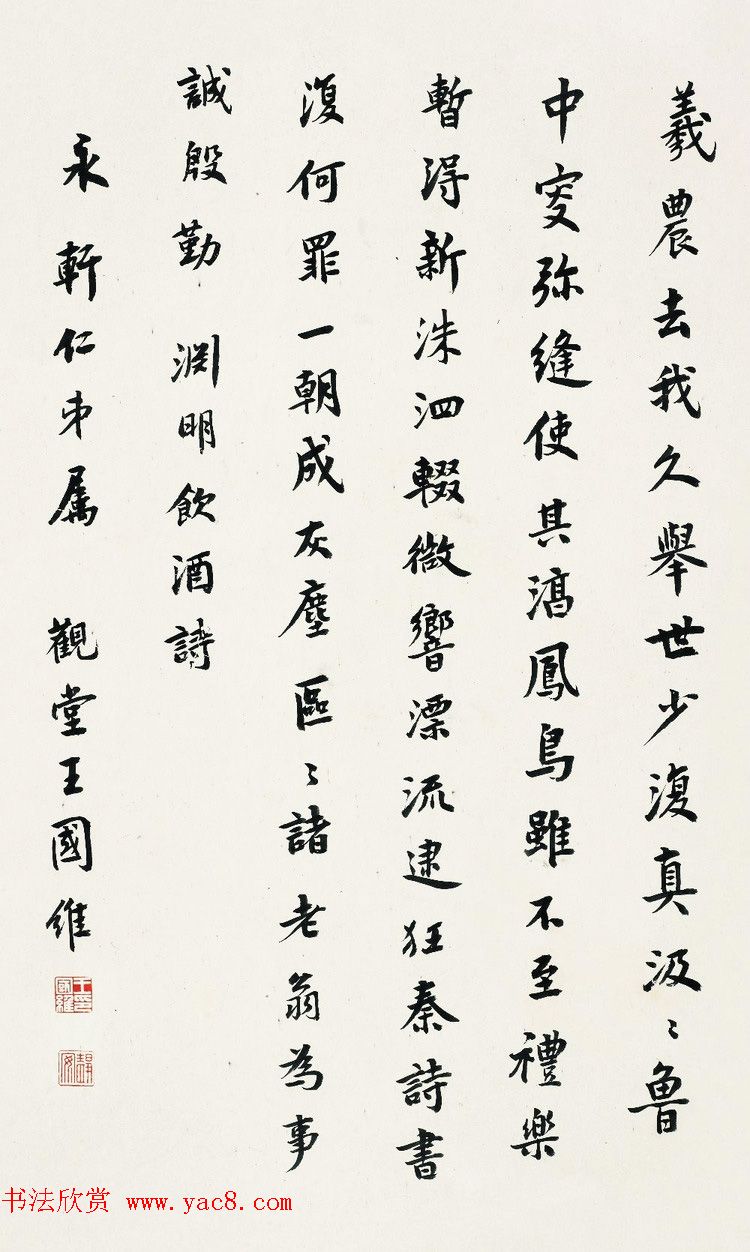 羲農去我久舉世少復真汲〻魯
中叟彌縫使其淳鳳鳥雖不至禮樂
暫得新洙泗輟微響漂流逮狂秦詩書
復何罪一朝成灰塵區〻諸老翁為事
誠殷勤 淵明飲酒詩
永軒仁弟屬 觀堂王國維
王國維印
靜安
书法欣赏 www.yac8.com